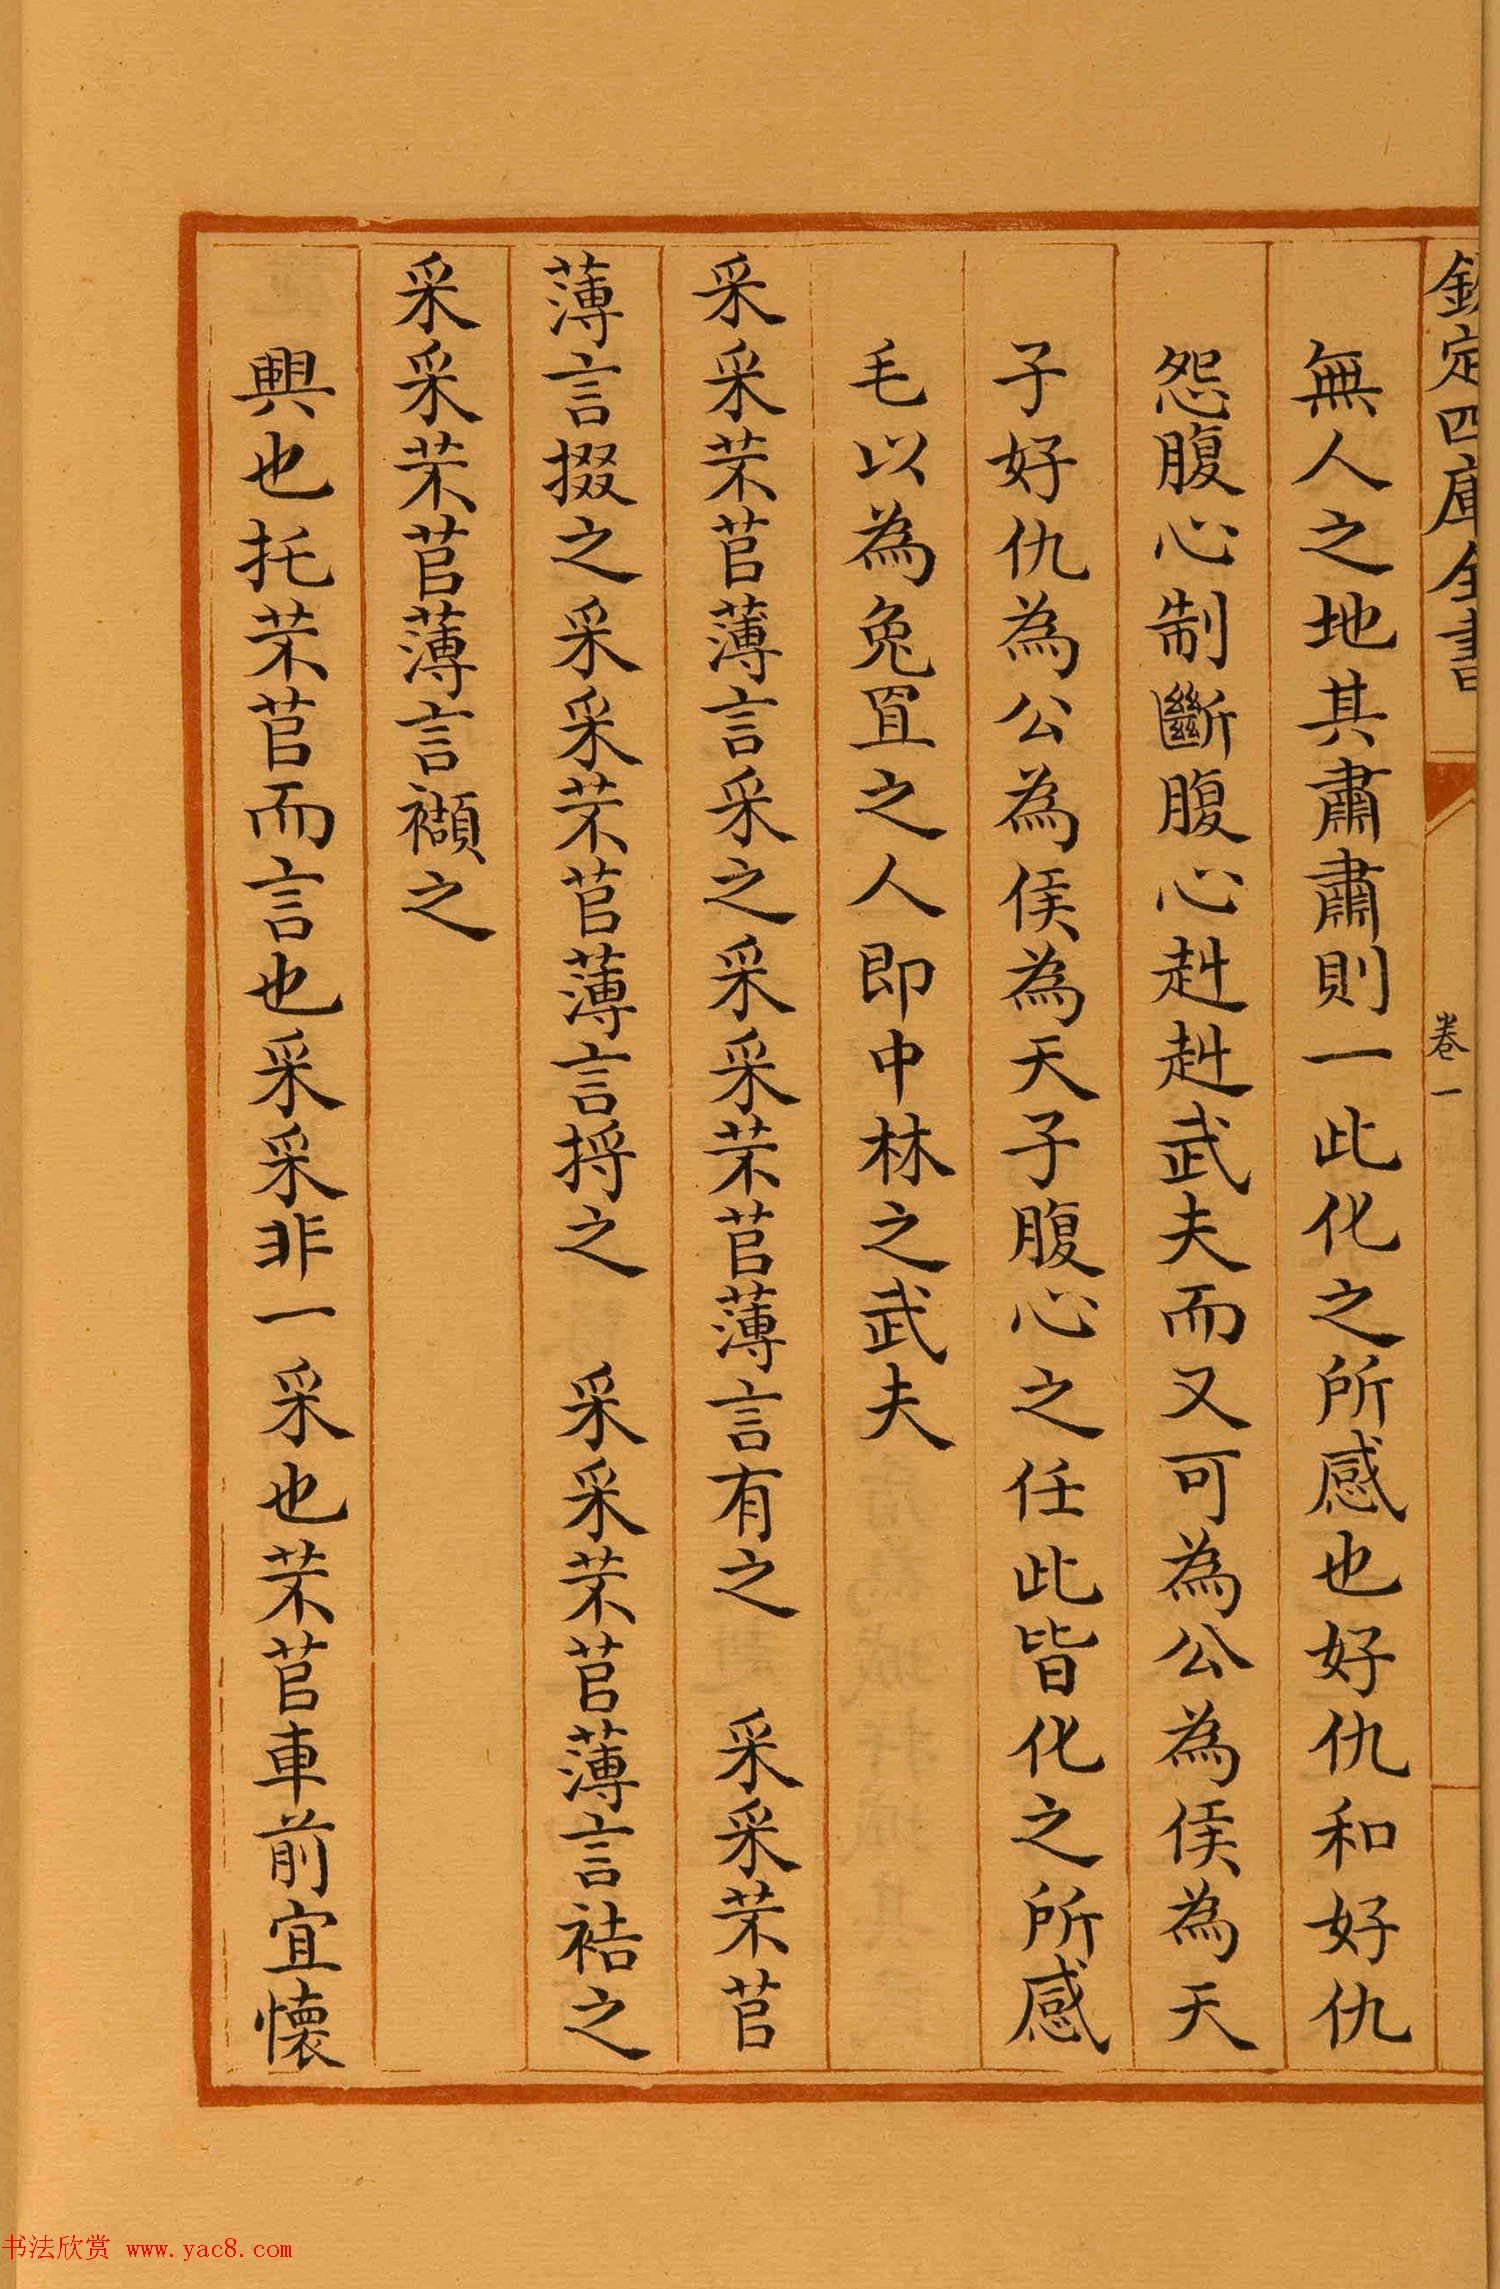 欽定四庫全書
卷一
無人之地其肅肅則一此化之所感也好仇和好仇
怨腹心制斷腹心赳赳武夫而又可為公為侯為天
子好仇為公為侯為天子腹心之任此皆化之所感
毛以為兔罝之人即中林之武夫
采采芣苢薄言采之采采芣苢薄言有之 采采芣苢
薄言掇之采采芣苢薄言捋之 采采芣苢薄言袺之
采采芣苢薄言襭之
興也托芣苢而言也采采非一采也芣苢車前宜懷
书法欣赏 www.yac8.com